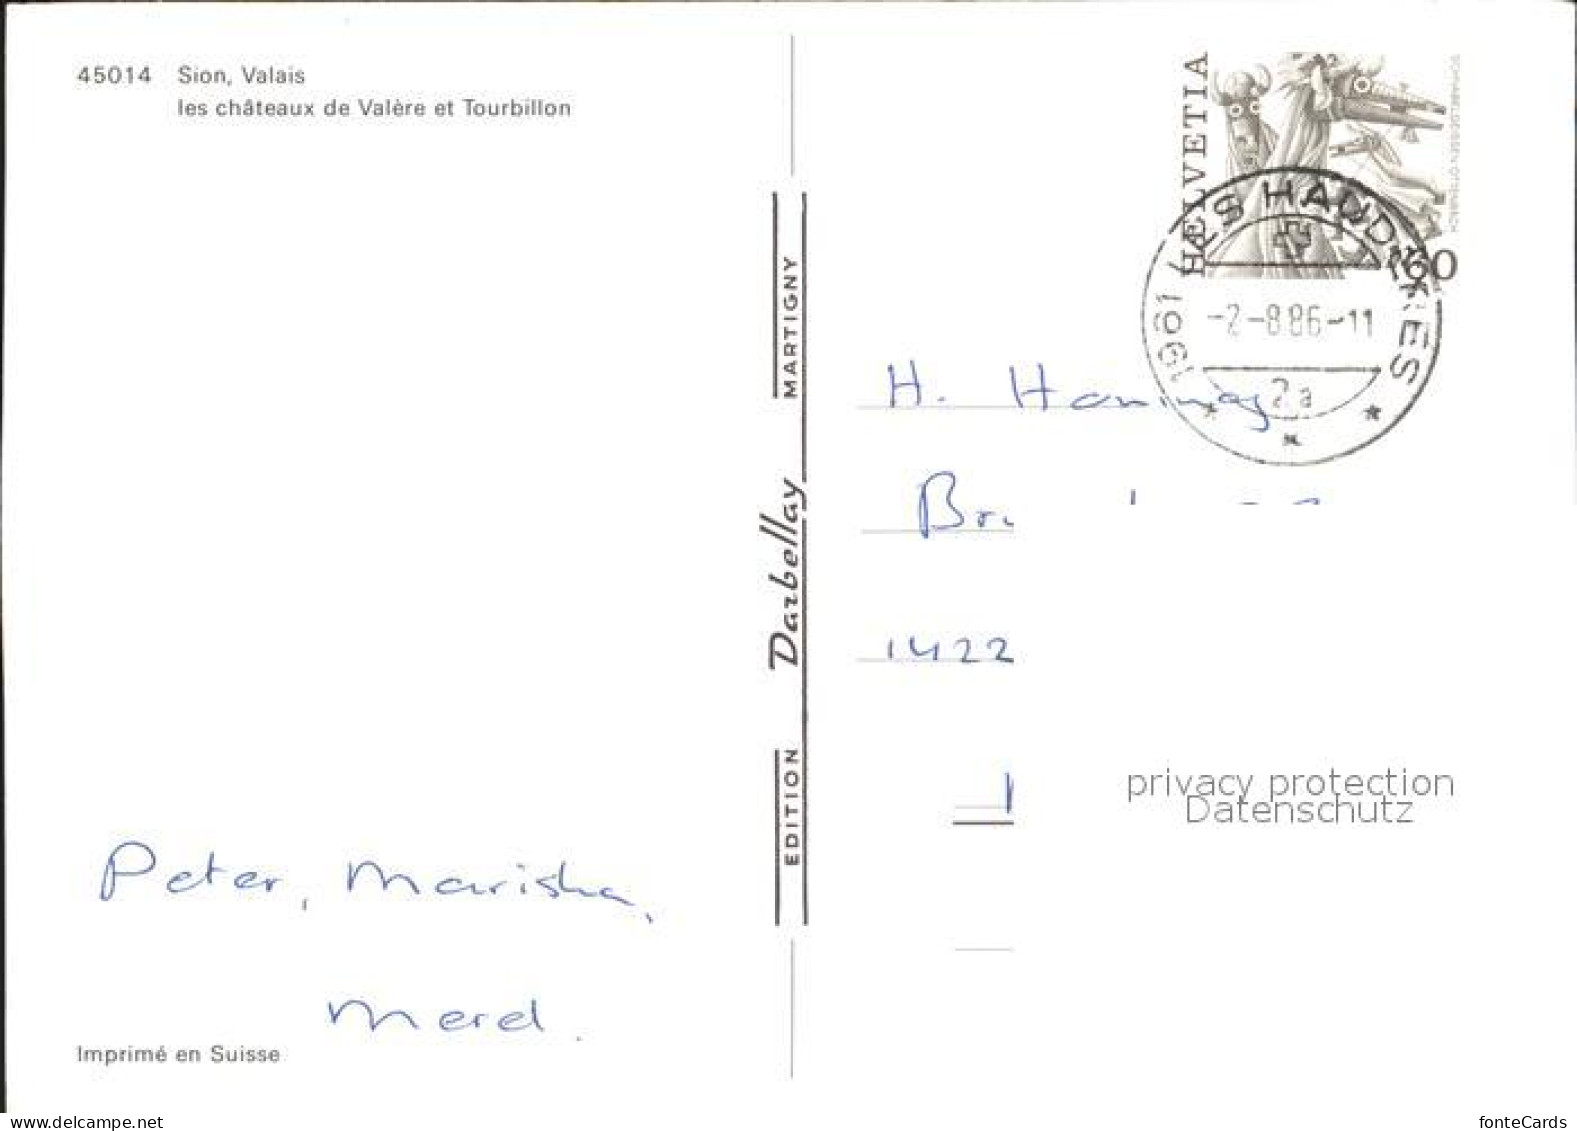 45014 Sion, Valais
les châteaux de Valère et Tourbillon
Peter, Mariska,
Merel.
Imprimé en Suisse
EDITION Darbellay MARTIGNY
HELVETIA
60
1961 LES HAUDÈRES
-2-8.86-11
2a
H.
1422
privacy protection
Datenschutz
www.delcampe.net
fonteCards